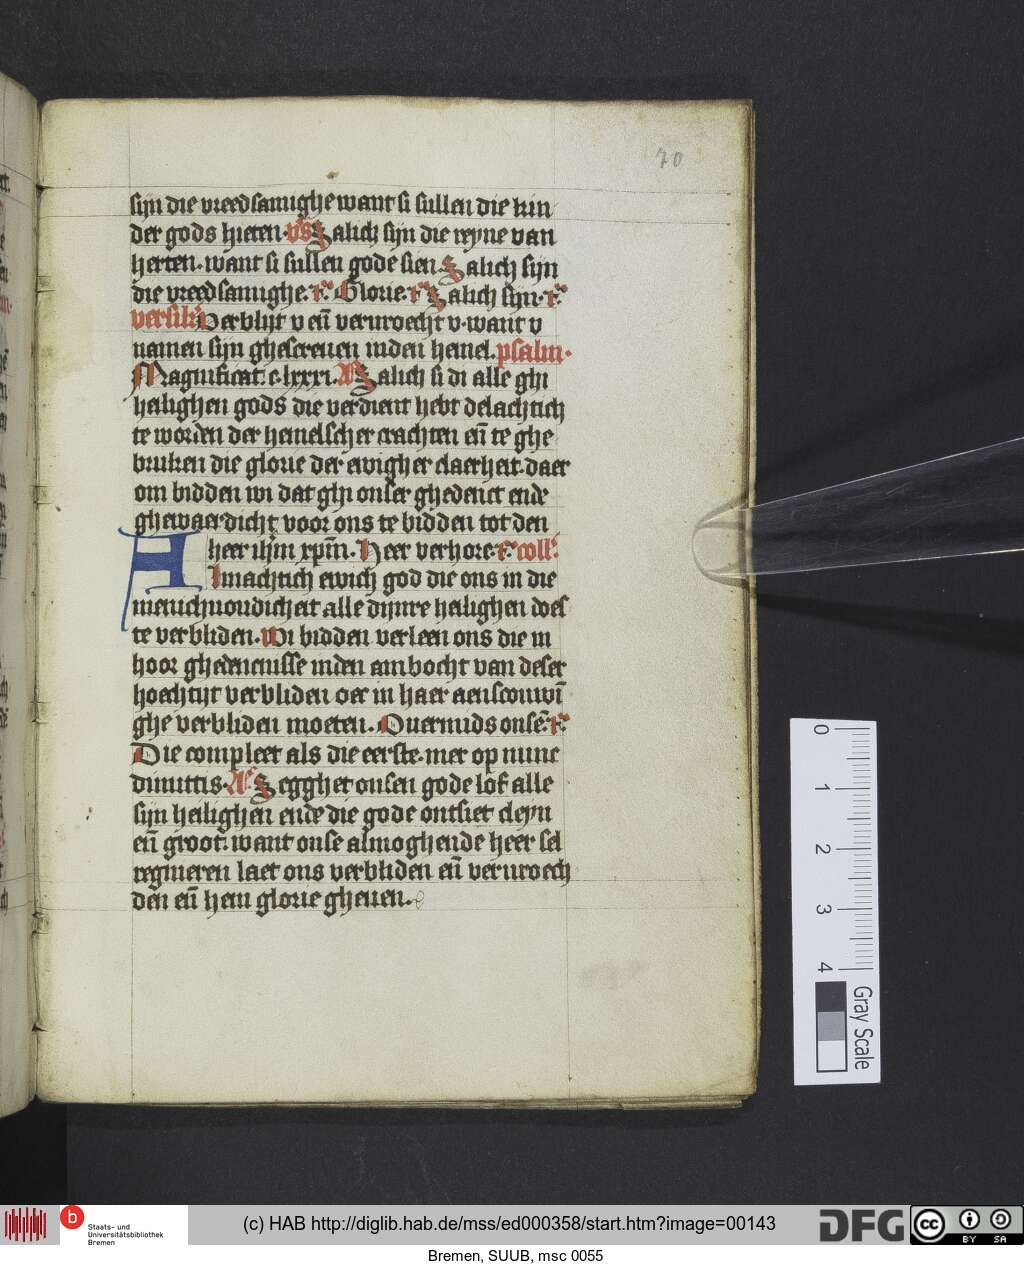 70
sijn die vreedsamighe want si sullen die kin
der gods hieten. v͛s Salich sijn die reyne van
herten. want si sullen gode sien. Salich sijn
die vreedsamighe. r͛. Glorie. r͛ Salich sijn. r͛
versikel Verblijt v eñ vervroecht v. want v
namen sijn ghescreuen inden hemel. psalm.
Magnificat. c. lxxxi. Salich si di alle ghi
heilighen gods die verdient hebt delachtich
te worden der hemelscher crachten eñ te ghe
bruken die glorie der ewigher claerheit. daer
om bidden wi dat ghi onser ghedenct ende
ghewaerdicht voor ons te bidden tot den
heer ihm xpm. Heer verhore. r͛. coll͛.
Almachtich ewich god die ons in die
menichuoudicheit alle dijnre heilighen doeſ
te verbliden. Wi bidden verleen ons die in
hoor ghedencnisse inden ambocht van deser
hoechtijt verbliden oec in haer aenscouwi̅
ghe verbliden moeten. Ouermids onsē. r͛.
Die compleet als die eerste. mer op nunc
dimittis. An͛ Segghet onsen gode lof alle
sijn heilighen ende die gode ontsiet cleyn
eñ groot. want onse almoghende heer sel
regnieren laet ons verbliden eñ vervroech
den eñ hem glorie gheuen.
0
1
2
3
4
Gray Scale
b
Staats- und
Universitätsbibliothek
Bremen
(c) HAB http://diglib.hab.de/mss/ed000358/start.htm?image=00143
DFG
cc
BY SA
Bremen, SUUB, msc 0055